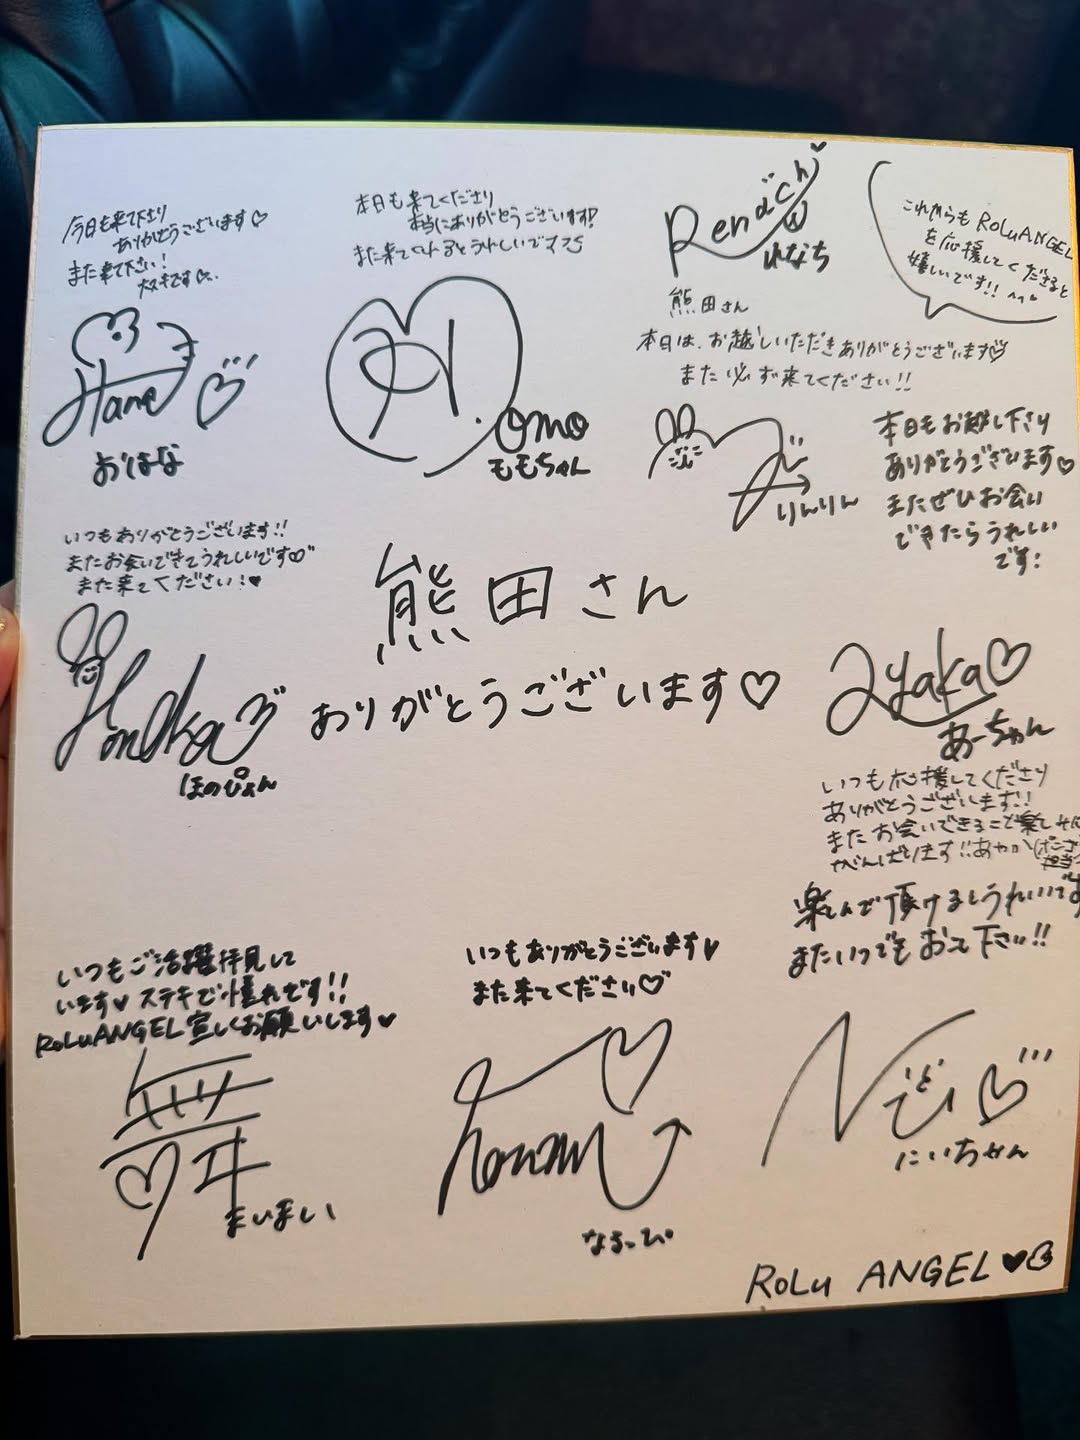 今日も来て下さり
ありがとうございます♡
また来て下さい!
大スキです♡
Hana
おはな
本日も来てくださり
本当にありがとうございます!
また来てくれるとうれしいです
M.omo
ももちゃん
Renach
れなち
これからも RoLuANGEL
を応援してくださると
嬉しいです!! ^^
熊田さん
本日は、お越しいただきありがとうございます♡
また必ず来てください!!
りんりん
本日もお越し下さり
ありがとうございます♡
またぜひお会い
できたらうれしい
です!
いつもありがとうございます!!
またお会いできてうれしいです♡
また来てください!♥
Honoka
ほのぴょん
熊田さん
ありがとうございます♡
Ayaka♡
あーちゃん
いつも応援してくださり
ありがとうございます!!
またお会いできること楽しみに
がんばります!!あやか
担当
楽しんで頂けるとうれしいです
またいつでもおこし下さい!!
いつもご活躍拝見して
います♥ステキで憧れです!!
RoLuANGEL宜しくお願いします♥
舞
まいまい
いつもありがとうございます♥
また来てください♡
なるぴ
にいちゃん
RoLu ANGEL♥